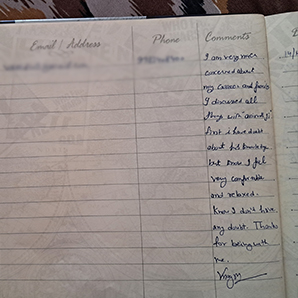 Email | Address Phone Comments
I am very
concerned about
my career and
I discussed all
things with
first i have doubt
about his knowledge
but now I feel
very comfortable
and relaxed.
Know I don't have
any doubt. Thanks
for being with
me.